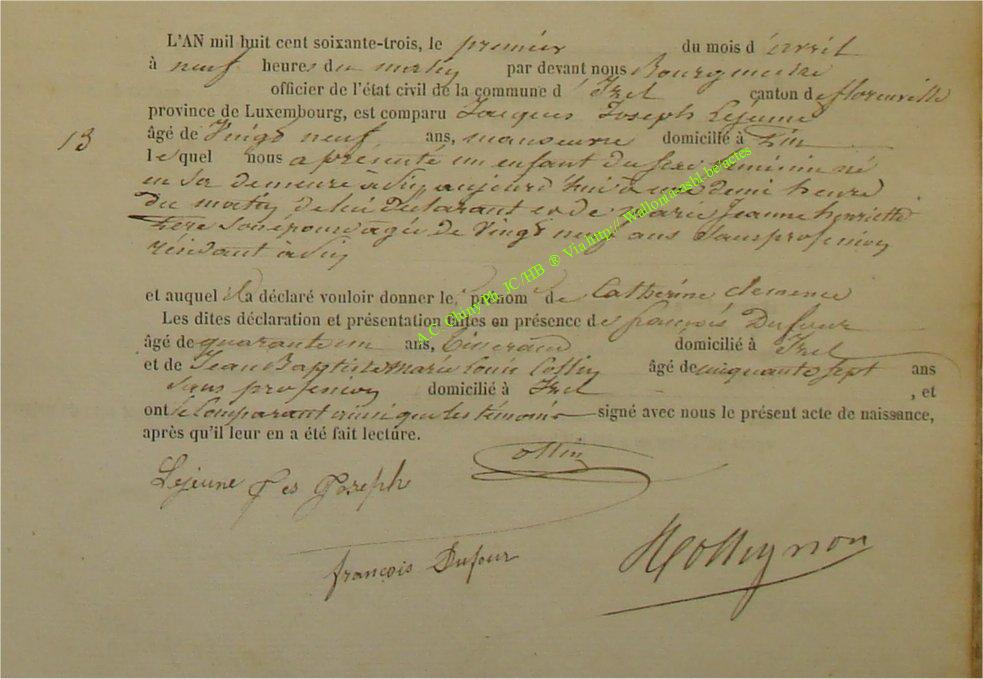 L'AN mil huit cent soixante-trois, le premier du mois d'avril
à neuf heures du matin par devant nous Bourgmestre
officier de l'état civil de la commune d'Izel canton de florenville
province de Luxembourg, est comparu Jacques Joseph Lejeune
13 âgé de Vingt neuf ans, manoeuvre domicilié à
lequel nous a présenté un enfant du sexe féminin né
en sa demeure à aujourd'hui à une demi heure
du matin de lui déclarant et de Marie Jeanne henriette
son épouse agée de Vingt neuf ans Sans profession
résidant à
et auquel il a déclaré vouloir donner les prénoms de Catherine clemence
Les dites déclaration et présentation faites en présence de françois Dufour
âgé de quarante un ans, domicilié à Izel
et de Jean Baptiste Marie Louis Collin âgé de cinquante sept ans
Sans profession domicilié à Izel , et
ont le Comparant ainsi que les témoins signé avec nous le présent acte de naissance,
après qu'il leur en a été fait lecture.
Lejeune Jes Joseph
Collin
françois Dufour
A.C. Chiny Ph. JC /HB ® Via http:// Wallonia-asbl.be/actes